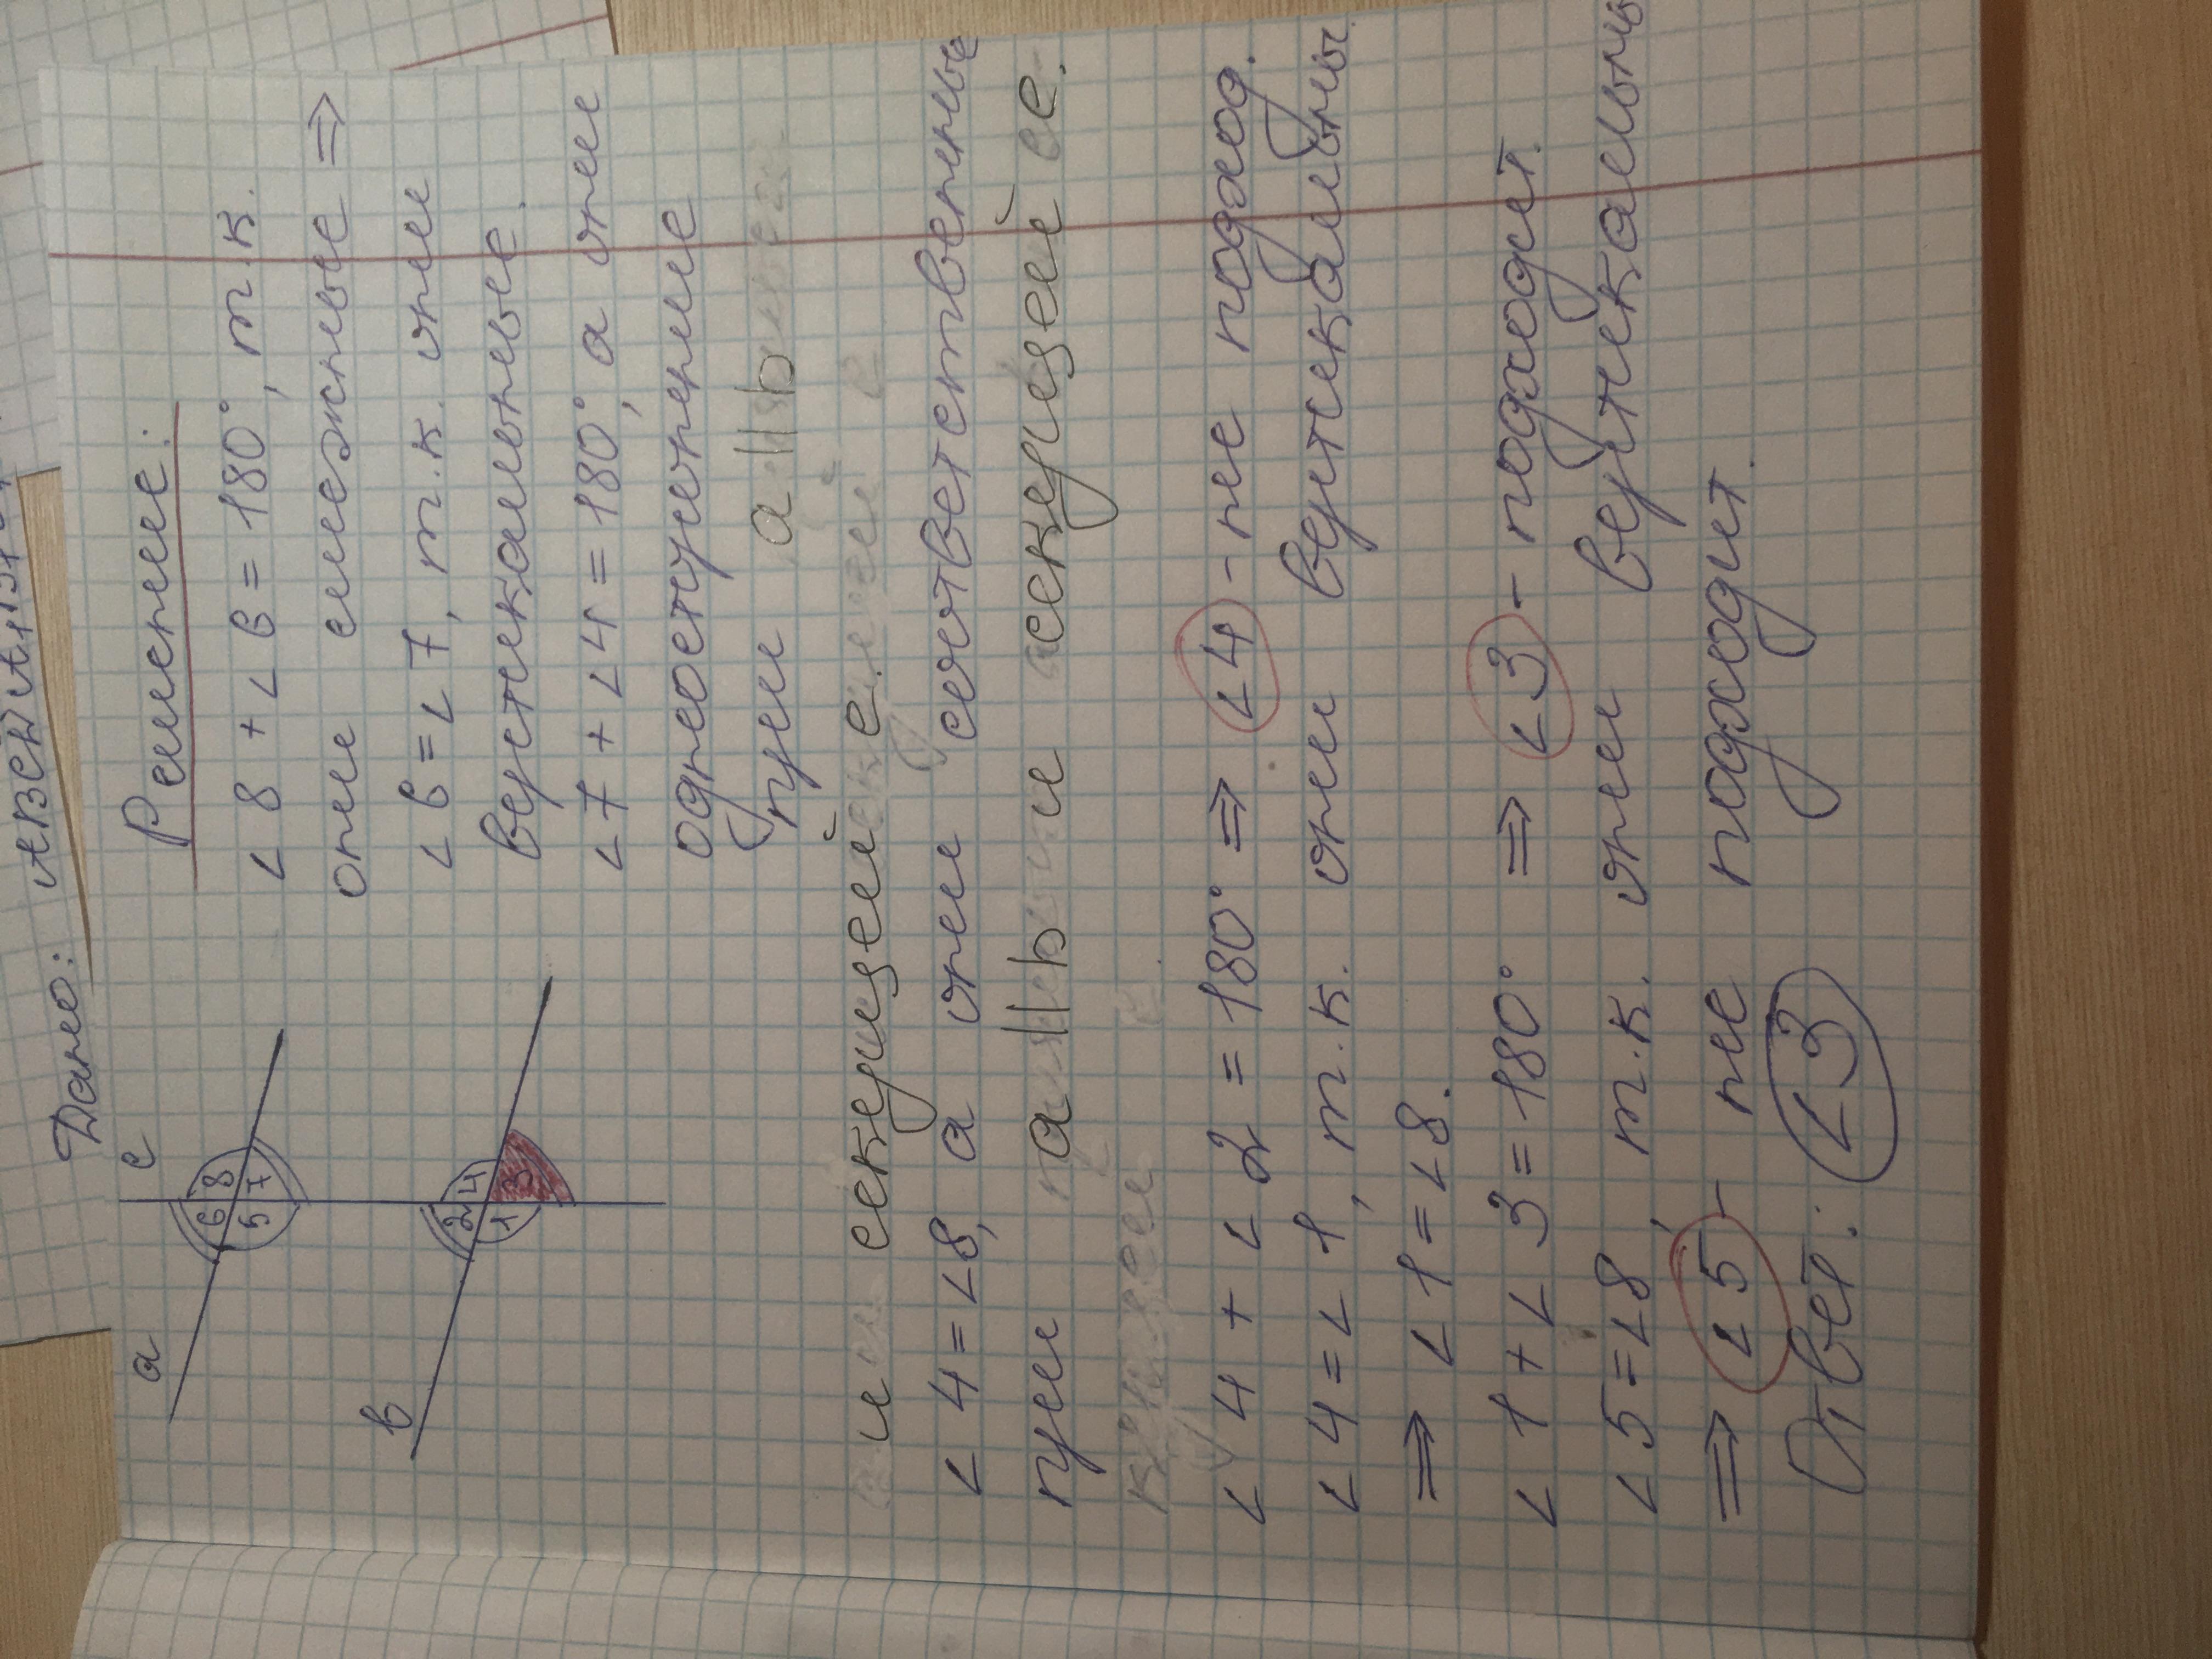 Дано:
a
c
6 8
5 7
b
2 4
1 3
Решение:
∠8 + ∠6 = 180°, т.к.
они смежные ⇒
∠6 = ∠7, т.к. они
вертикальные.
∠7 + ∠4 = 180°, а они
односторонние
при a||b
и секущей c.
∠4 = ∠8, а они соответственные
при a||b и секущей c.
∠4 + ∠2 = 180° ⇒ ∠4 - не подход.
∠4 = ∠1, т.к. они вертикальны.
⇒ ∠1 = ∠8.
∠1 + ∠3 = 180° ⇒ ∠3 - подходит.
∠5 = ∠8, т.к. они вертикальны
⇒ ∠5 - не подходит.
Ответ: ∠3